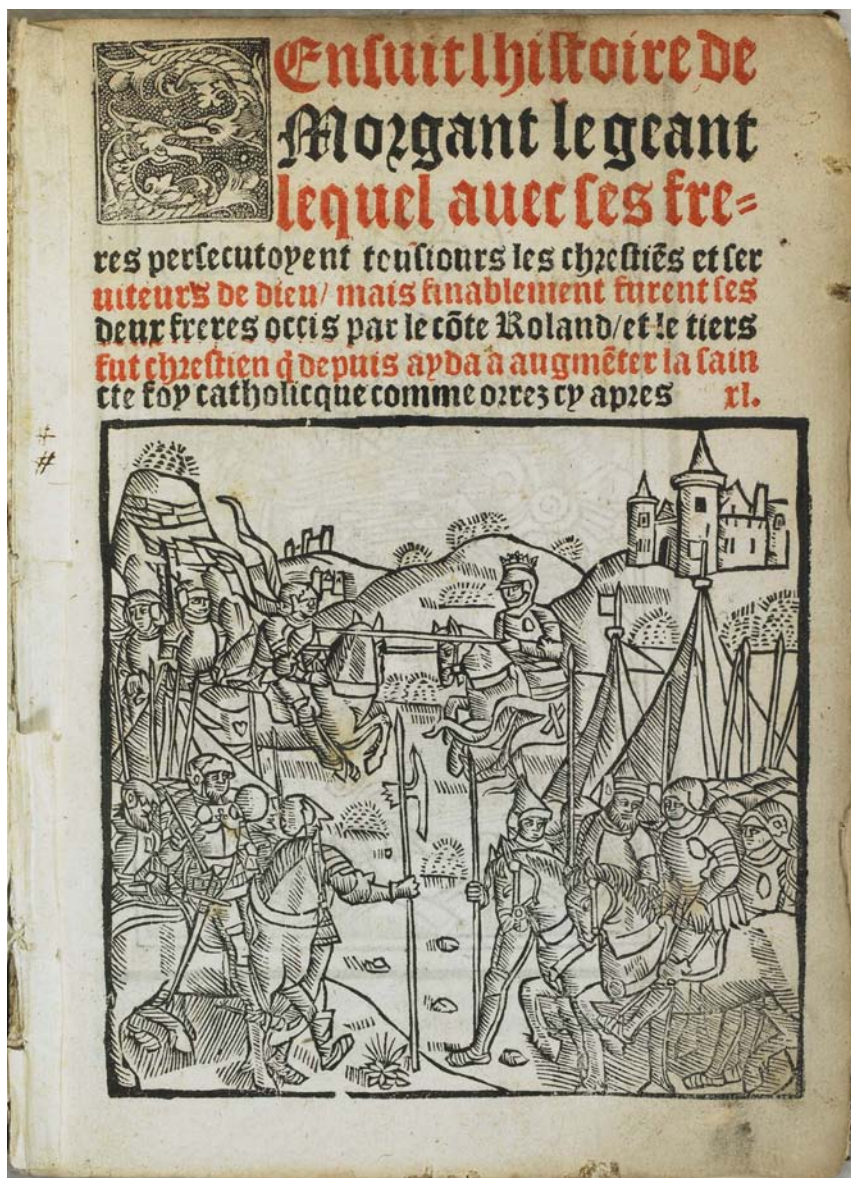 SEnsuit lhistoire de
Morgant le geant
lequel auec ses fre=
res persecutoyent tousiours les chrestiēs et ser
uiteurs de dieu/ mais finablement furent ses
deux freres occis par le cōte Roland/et le tiers
fut chrestien q̄ depuis ayda a augmēter la sain
cte foy catholicque comme orrez cy apres xl.